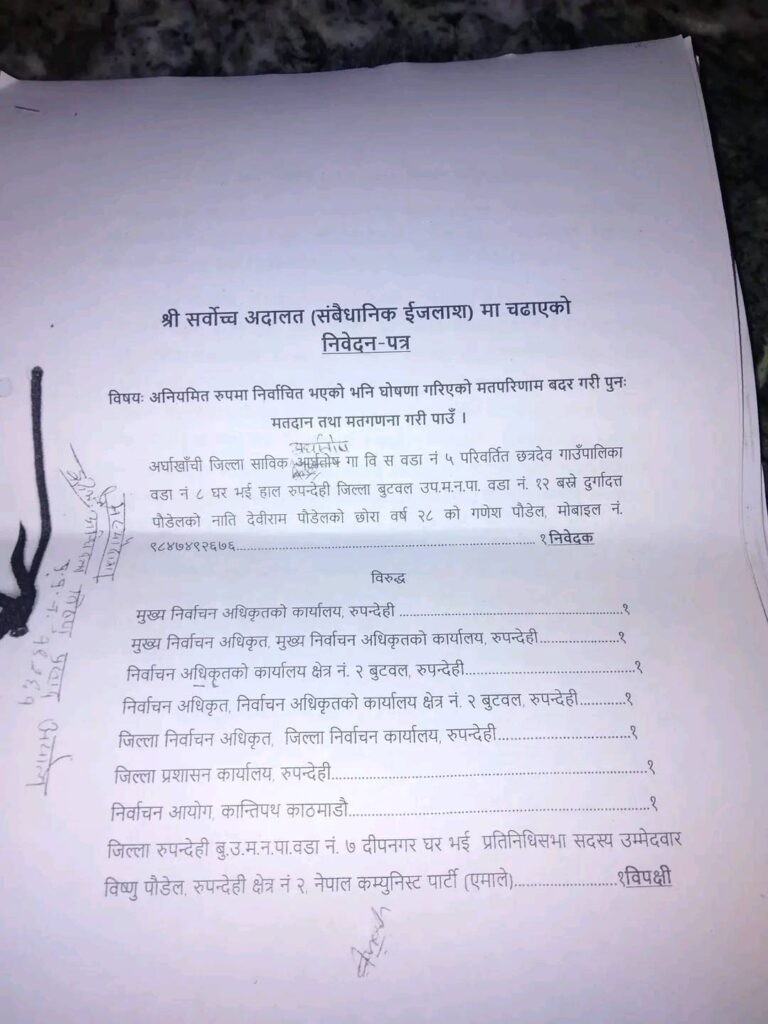 श्री सर्वोच्च अदालत (संबैधानिक ईजलाश) मा चढाएको
निवेदन-पत्र
विषयः अनियमित रुपमा निर्वाचित भएको भनि घोषणा गरिएको मतपरिणाम बदर गरी पुनः
मतदान तथा मतगणना गरी पाउँ ।
अर्घाखाँची जिल्ला साविक गा वि स वडा नं ५ परिवर्तित छत्रदेव गाउँपालिका
वडा नं ८ घर भई हाल रुपन्देही जिल्ला बुटवल उप.म.न.पा. वडा नं. १२ बस्ने दुर्गादत्त
पौडेलको नाति देवीराम पौडेलको छोरा वर्ष २८ को गणेश पौडेल, मोबाइल नं.
९८४७४९२६७६.......................................................... १निवेदक
विरुद्ध
मुख्य निर्वाचन अधिकृतको कार्यालय, रुपन्देही ..........................................१
मुख्य निर्वाचन अधिकृत, मुख्य निर्वाचन अधिकृतको कार्यालय, रुपन्देही...............१
निर्वाचन अधिकृतको कार्यालय क्षेत्र नं. २ बुटवल, रुपन्देही................................१
निर्वाचन अधिकृत, निर्वाचन अधिकृतको कार्यालय क्षेत्र नं. २ बुटवल, रुपन्देही..........१
जिल्ला निर्वाचन अधिकृत, जिल्ला निर्वाचन कार्यालय, रुपन्देही.........................१
जिल्ला प्रशासन कार्यालय, रुपन्देही............................................................१
निर्वाचन आयोग, कान्तिपथ काठमाडौ.........................................................१
जिल्ला रुपन्देही बु.उ.म.न.पा.वडा नं. ७ दीपनगर घर भई प्रतिनिधिसभा सदस्य उम्मेदवार
विष्णु पौडेल, रुपन्देही क्षेत्र नं २, नेपाल कम्युनिस्ट पार्टी (एमाले)....................१विपक्षी